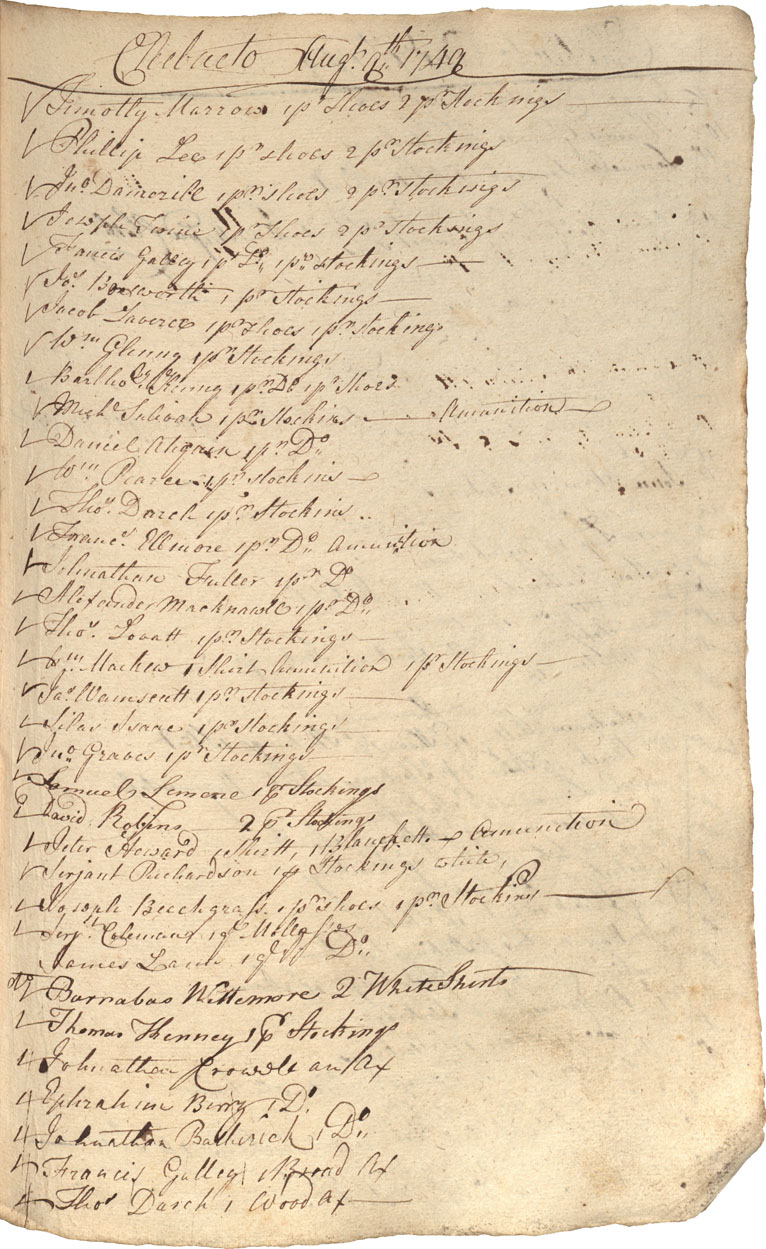 Chebucto Augt. 9th 1749
Timothy Marrow 1 pr Shoes 2 pr Stockings
Phillip Lee 1 pr shoes 2 pr Stockings
Jno. Damorill 1 pr shoes 2 pr Stockings
Joseph Twine 1 pr Shoes 2 pr Stockings
Francis Galley 1 pr Do. 1 pr Stockings
Jos. Bosworth 1 pr Stockings
Jacob Taverex 1 pr Shoes 1 pr stockings
Wm Glenny 1 pr Stockings
Barthol. Kenny 1 pr Do 1 pr Shoes
Michl. 1 pr Stockins Amunition
Daniel 1 pr Do.
Wm Pearce 1 pr stockins
Thos. Darch 1 pr Stockins
Francs. Ellmore 1 pr Do. Amunition
Johnathan Fuller 1 pr Do
Alexander Macknawl 1 pr Do.
Thos. Lovatt 1 pr Stockings
Wm Machew 1 Shirt Amunition 1 pr Stockings
Jas. Wamsentt 1 pr stockings
Silas Isaac 1 pr Stockings
Jno. Graves 1 pr Stockings
Samuel Lemene 1 pr Stockings
David Robins 2 pr Stockings
Peter Heward 1 Shirtt, 1 Blanckett Amunition
Serjant Richardson 1 pr Stockings white,
Joseph Beechgrass 1 pr shoes 1 pr Stockins
Serjt. Coleman 1 gl Mollasses
James Law 1 gl Do.
Barnabas Wittemore 2 White Shirts
Thomas Kenney 1 pr Stockings
Johnathan Crowell an Ax
Ephrahim Berry 1 Do.
Johnathan Batterick 1 Do.
Francis Galley 1 Broad Ax
Thos Darch 1 Wood Ax